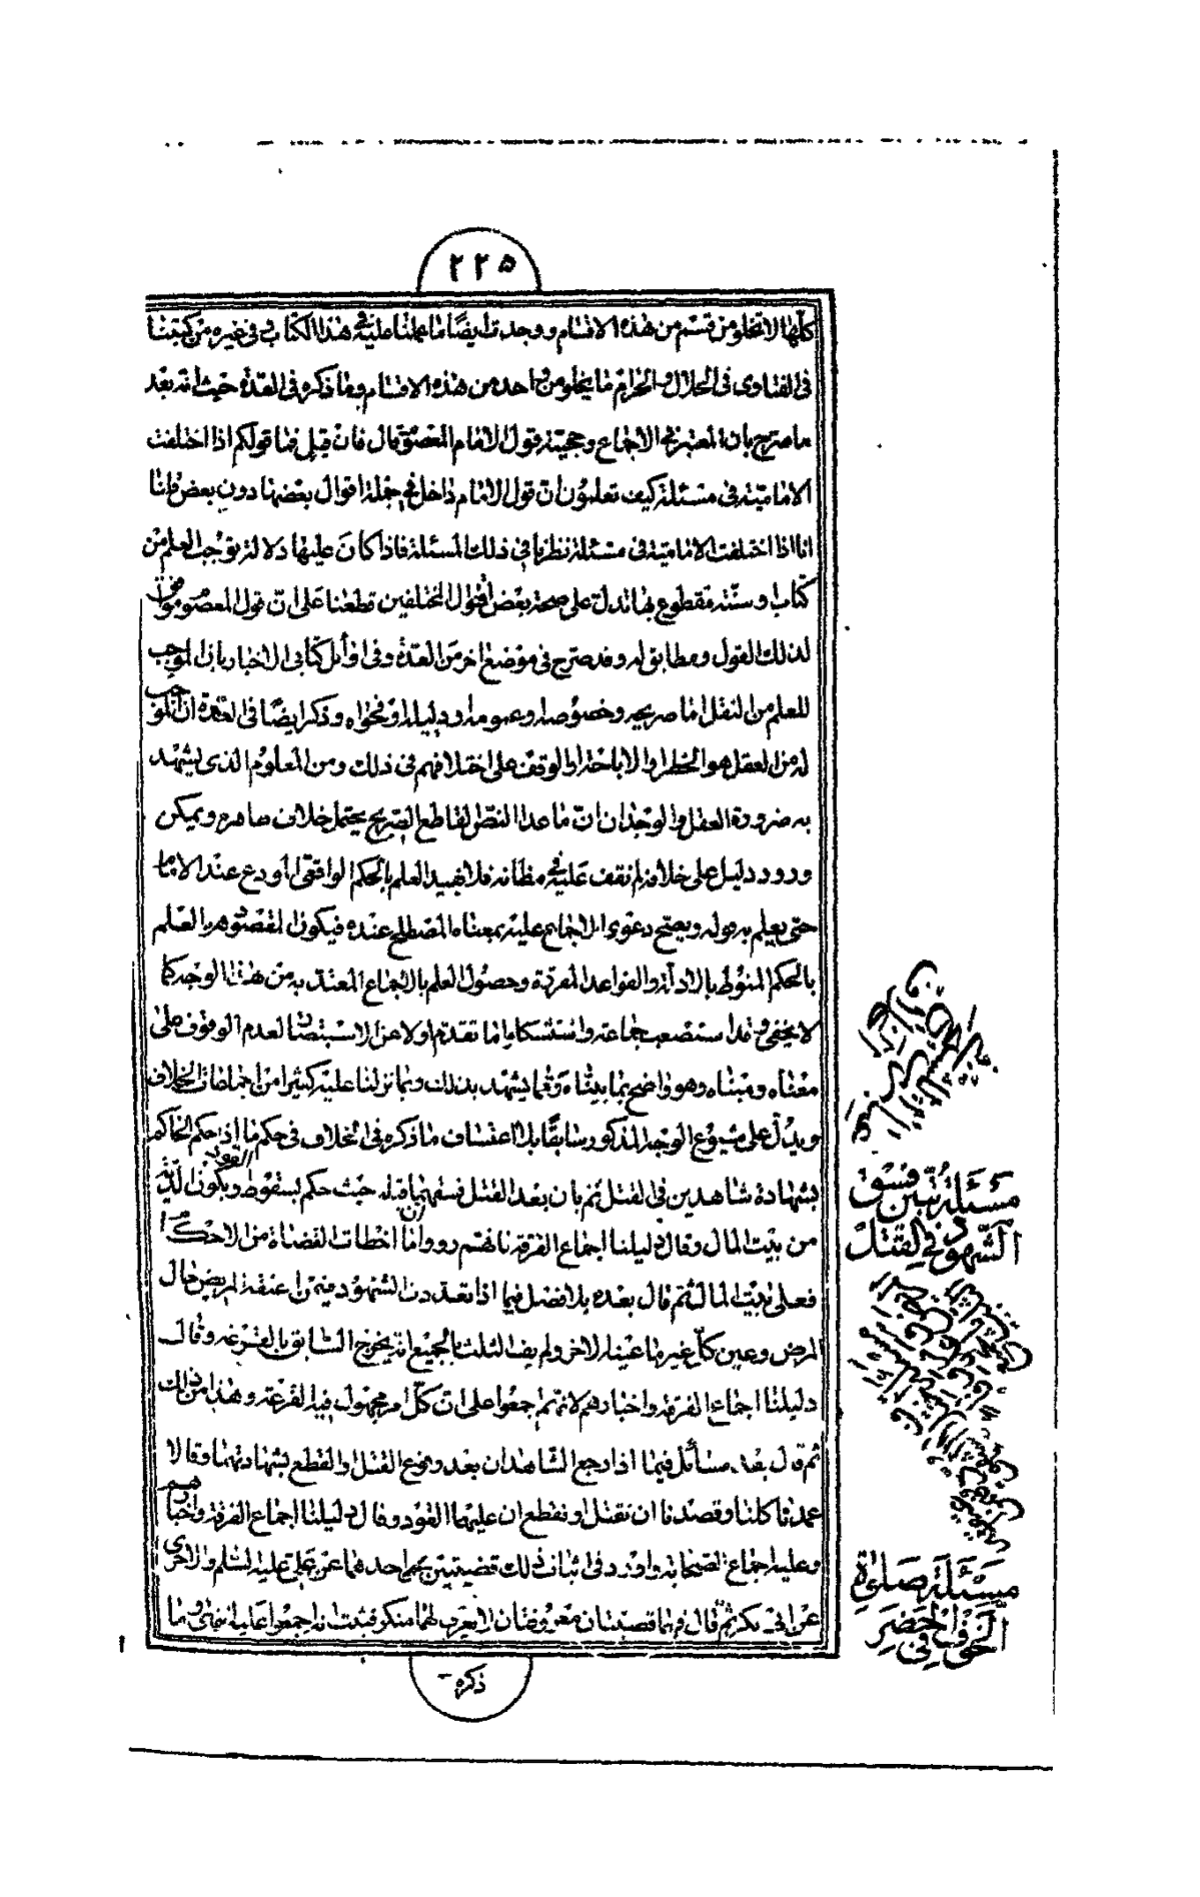 ٢٢٥
كلها لا تخلو من قسم من هذه الاقسام ووجدت ايضًا ما عملنا عليه فى هذا الكتاب وفى غيره من كتبنا
فى الفتاوى فى الحلال والحرام ما يخلو من واحد من هذه الاقسام وما ذكره فى العدّة حيث انه بعد
ما صرح بان المعتبر فى الاجماع وحجيته قول الامام المعصوم قال فان قيل فما قولكم اذا اختلفت
الاماميّة فى مسئلة كيف تعلمون ان قول الامام داخل فى جملة اقوال بعضها دون بعض قلنا
انا اذا اختلفت الامامية فى مسئلة نظرنا فى ذلك المسئلة فاذا كان عليها دلالة توجب العلم من
كتاب وسنّة مقطوع بها تدل على صحة بعض اقوال المختلفين قطعنا على ان قول المعصوم موافق
لذلك القول ومطابق له وقد صرح فى موضع اخر من العدّة وفى اوائل كتابى الاخبار بان الموجب
للعلم من النقل اما صريحه وخصوصه وعمومه او دليله او فحواه وذكر ايضًا فى العدّة ان الموجب
له من العقل هو الحظر او الاباحة او الوقف على اختلافهم فى ذلك ومن المعلوم الذى يشهد
به ضرورة العقل والوجدان ان ما عدا النصّ القاطع الصريح يحتمل خلاف ظاهره ويمكن
ورود دليل على خلافه لم نقف عليه فى مظانه فلا يفيد العلم بالحكم الواقعى المودع عند الامام
حتى يعلم به قوله ويصح دعوى الاجماع عليه بمعناه المصطلح عنده فيكون المقصود هو العلم
بالحكم المنوط بالادلة والقواعد المقررة وحصول العلم بالاجماع المعتد به من هذا الوجه كما
لا يخفى وقد استصعب جماعة واستشكلوا ما تقدم اولا عن الاستبصار لعدم الوقوف على
معناه ومبناه وهو واضح بما بيناه وممّا يشهد بذلك وبما نزلنا عليه كثيرا من اجماعات الخلاف
ويدل على شيوع الوجه المذكور سابقًا بلا اعتساف ما ذكره فى الخلاف فى حكم ما اذا حكم الحاكم
بشهادة شاهدين فى القتل ثم بان بعد القتل فسقهما قبله حيث حكم بسقوط القود ويكون الدّية
من بيت المال وقال دليلنا اجماع الفرقة فانهم رووا ان ما اخطات القضاة من الاحكام
فعلى بيت المال ثم قال بعده بلا فصل فيما اذا تعددت الشهود فيمن اعتقه المريض حال
المرض وعين كل غير ما عينه الاخر ولم يف الثلث بالجميع انه يخرج السابق بالقرعة وقال
دليلنا اجماع الفرقة واخبارهم لانهم اجمعوا على ان كل امر مجهول فيه القرعة وهذا من ذلك
ثم قال بعد مسائل فيما اذا رجع الشاهدان بعد وقوع القتل او القطع بشهادتهما وقالا
عمدنا كلنا وقصدنا ان نقتل او نقطع ان عليهما القود وقال دليلنا اجماع الفرقة واخبارهم
وعليه اجماع الصحابة واورد فى اثبات ذلك قضيتين احدهما عن على عليه السلم والاخرى
عن ابى بكر ثم قال وهما قضيتان معروفتان لا يعرف لهما منكر فثبت انه اجمعوا عليه انتهى وما
ذكره
مسئلة تبين فسق
الشهود فى القتل
مسئلة صلوة
الخوف فى الحضر